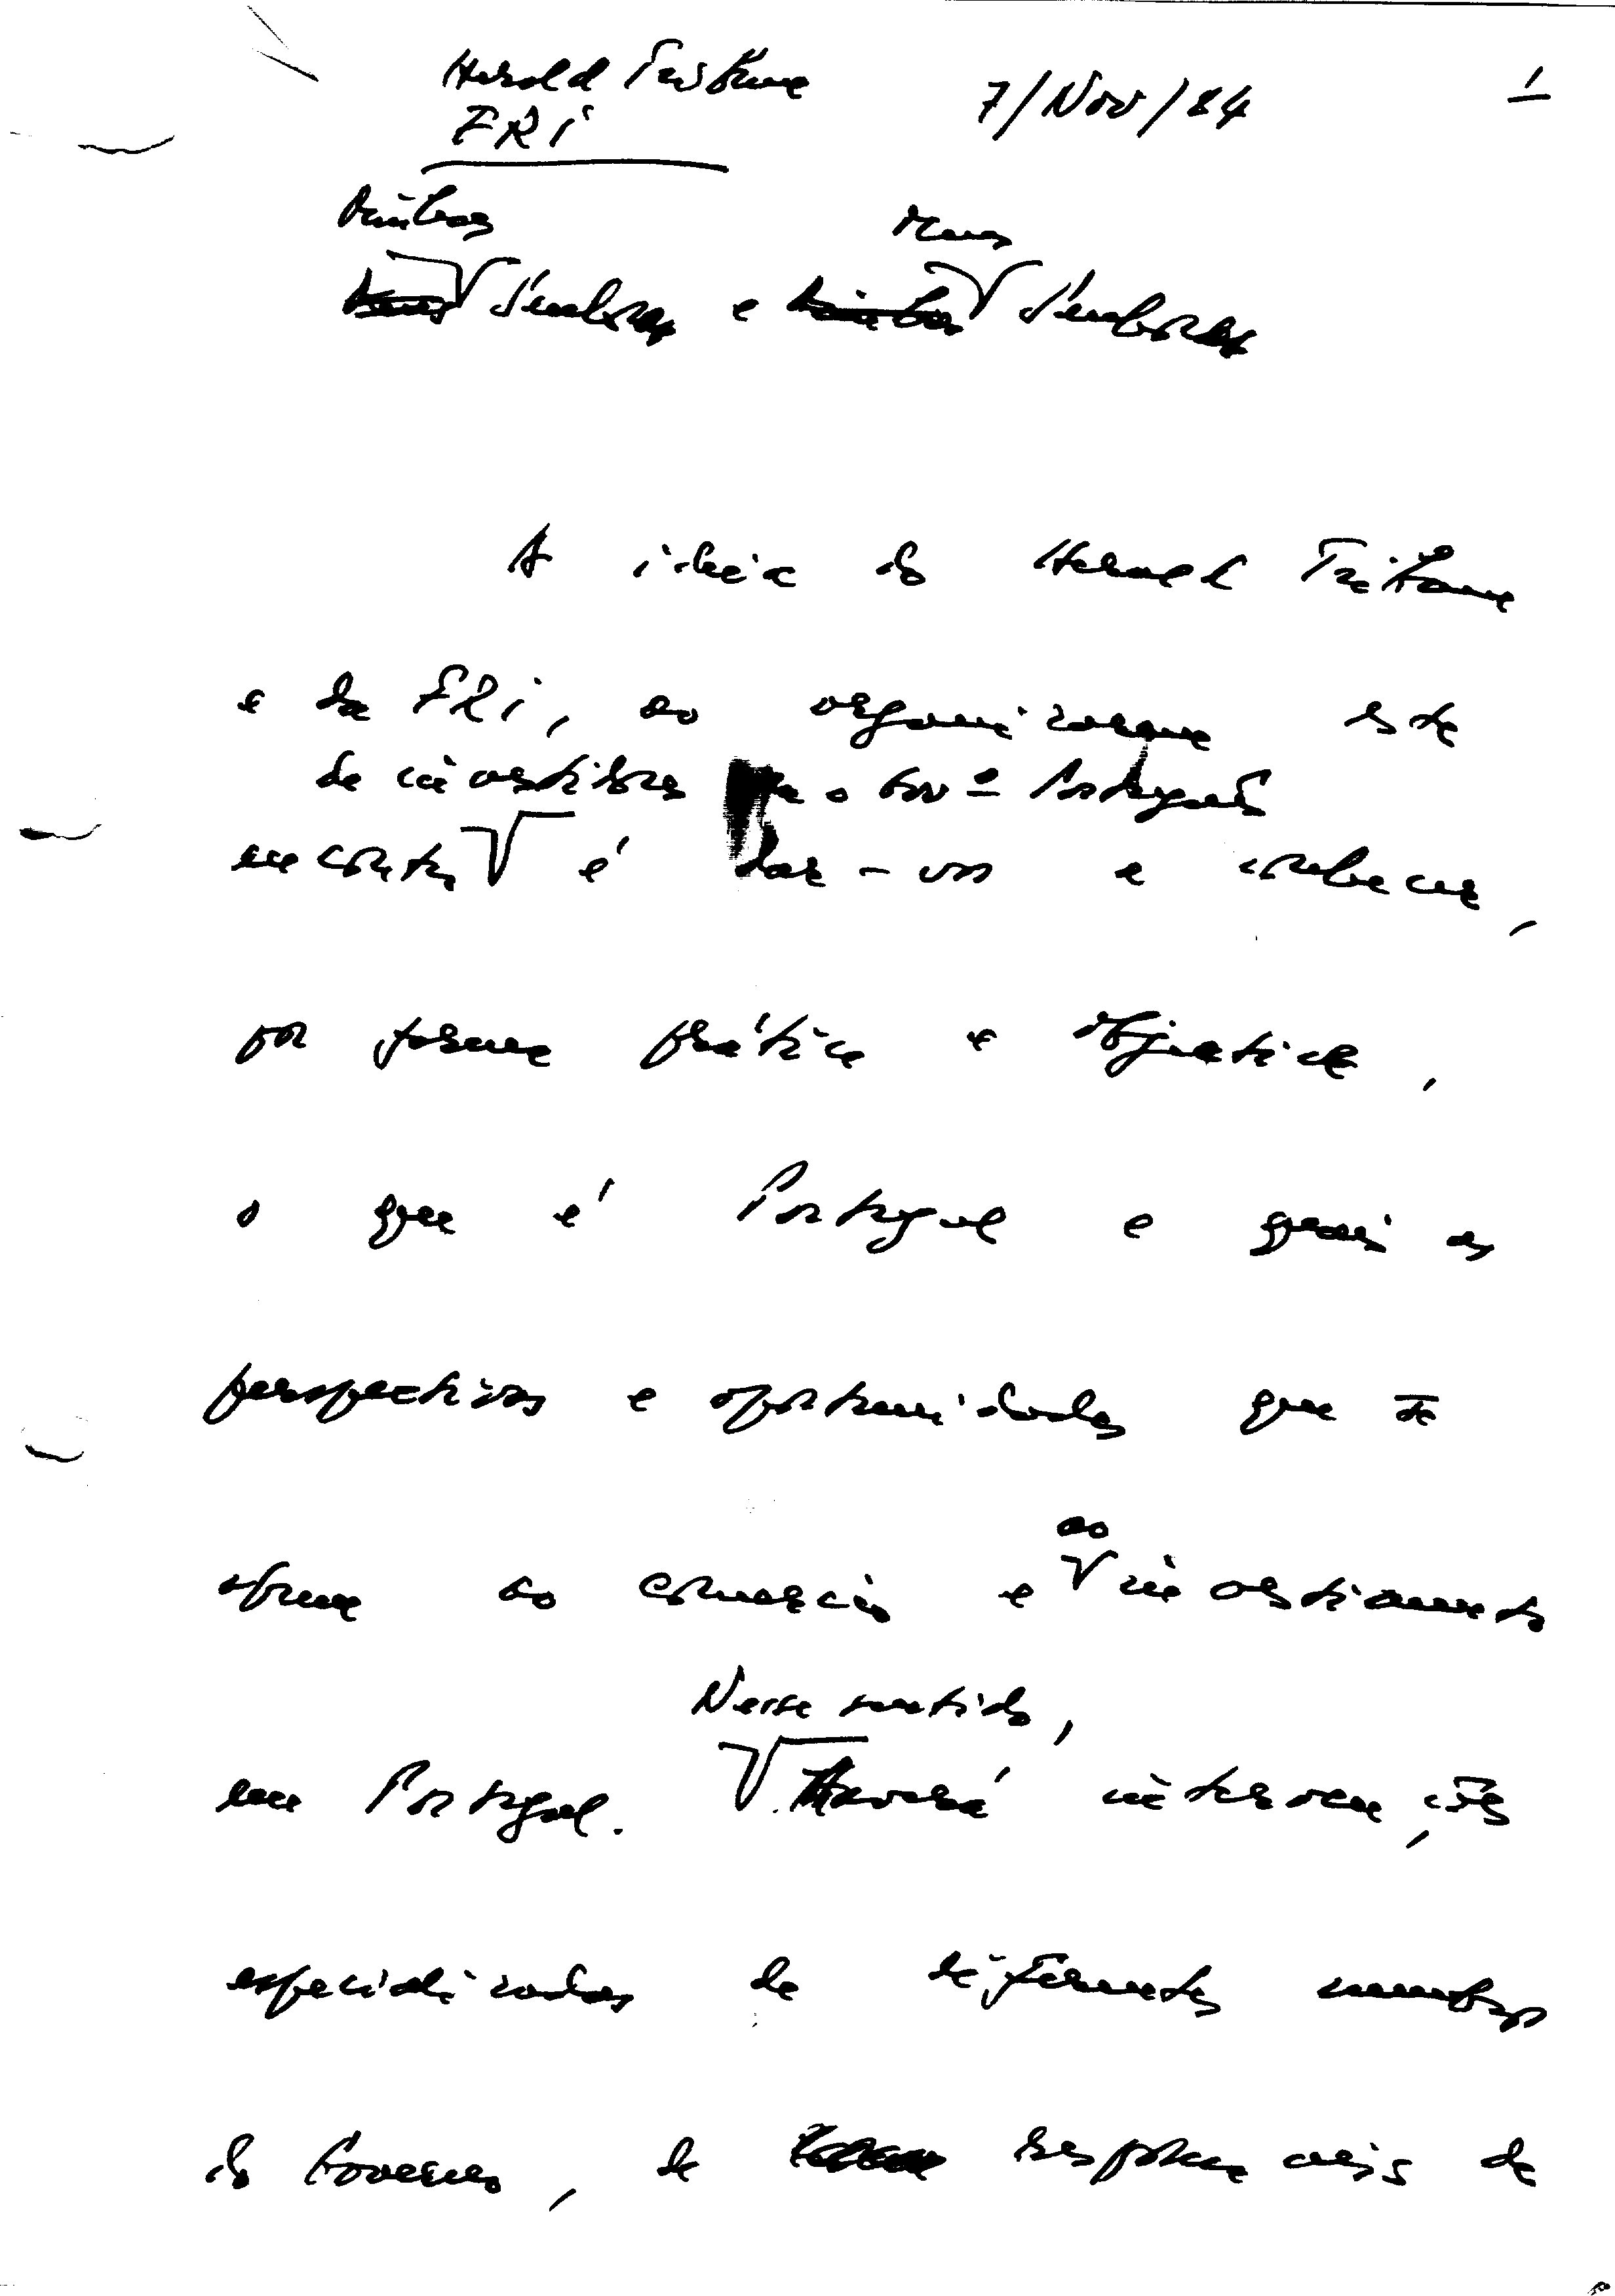 Herald Tribune 7/Nov/84 1
FRI
Minhas Meus
Senhoras e Senhores
A ideia do Herald Tribune
e da FRI, ao organizarem este
de investidores o Govº Português
encontro é dar-vos a conhecer,
por forma prática e objectiva,
o que é Portugal e quais as
perspectivas e oportunidades que se
ao
oferece ao comércio e investimento
Nesse sentido,
em Portugal. Haverá intervenções
especializadas de diferentes membros
do Governo, de responsáveis de